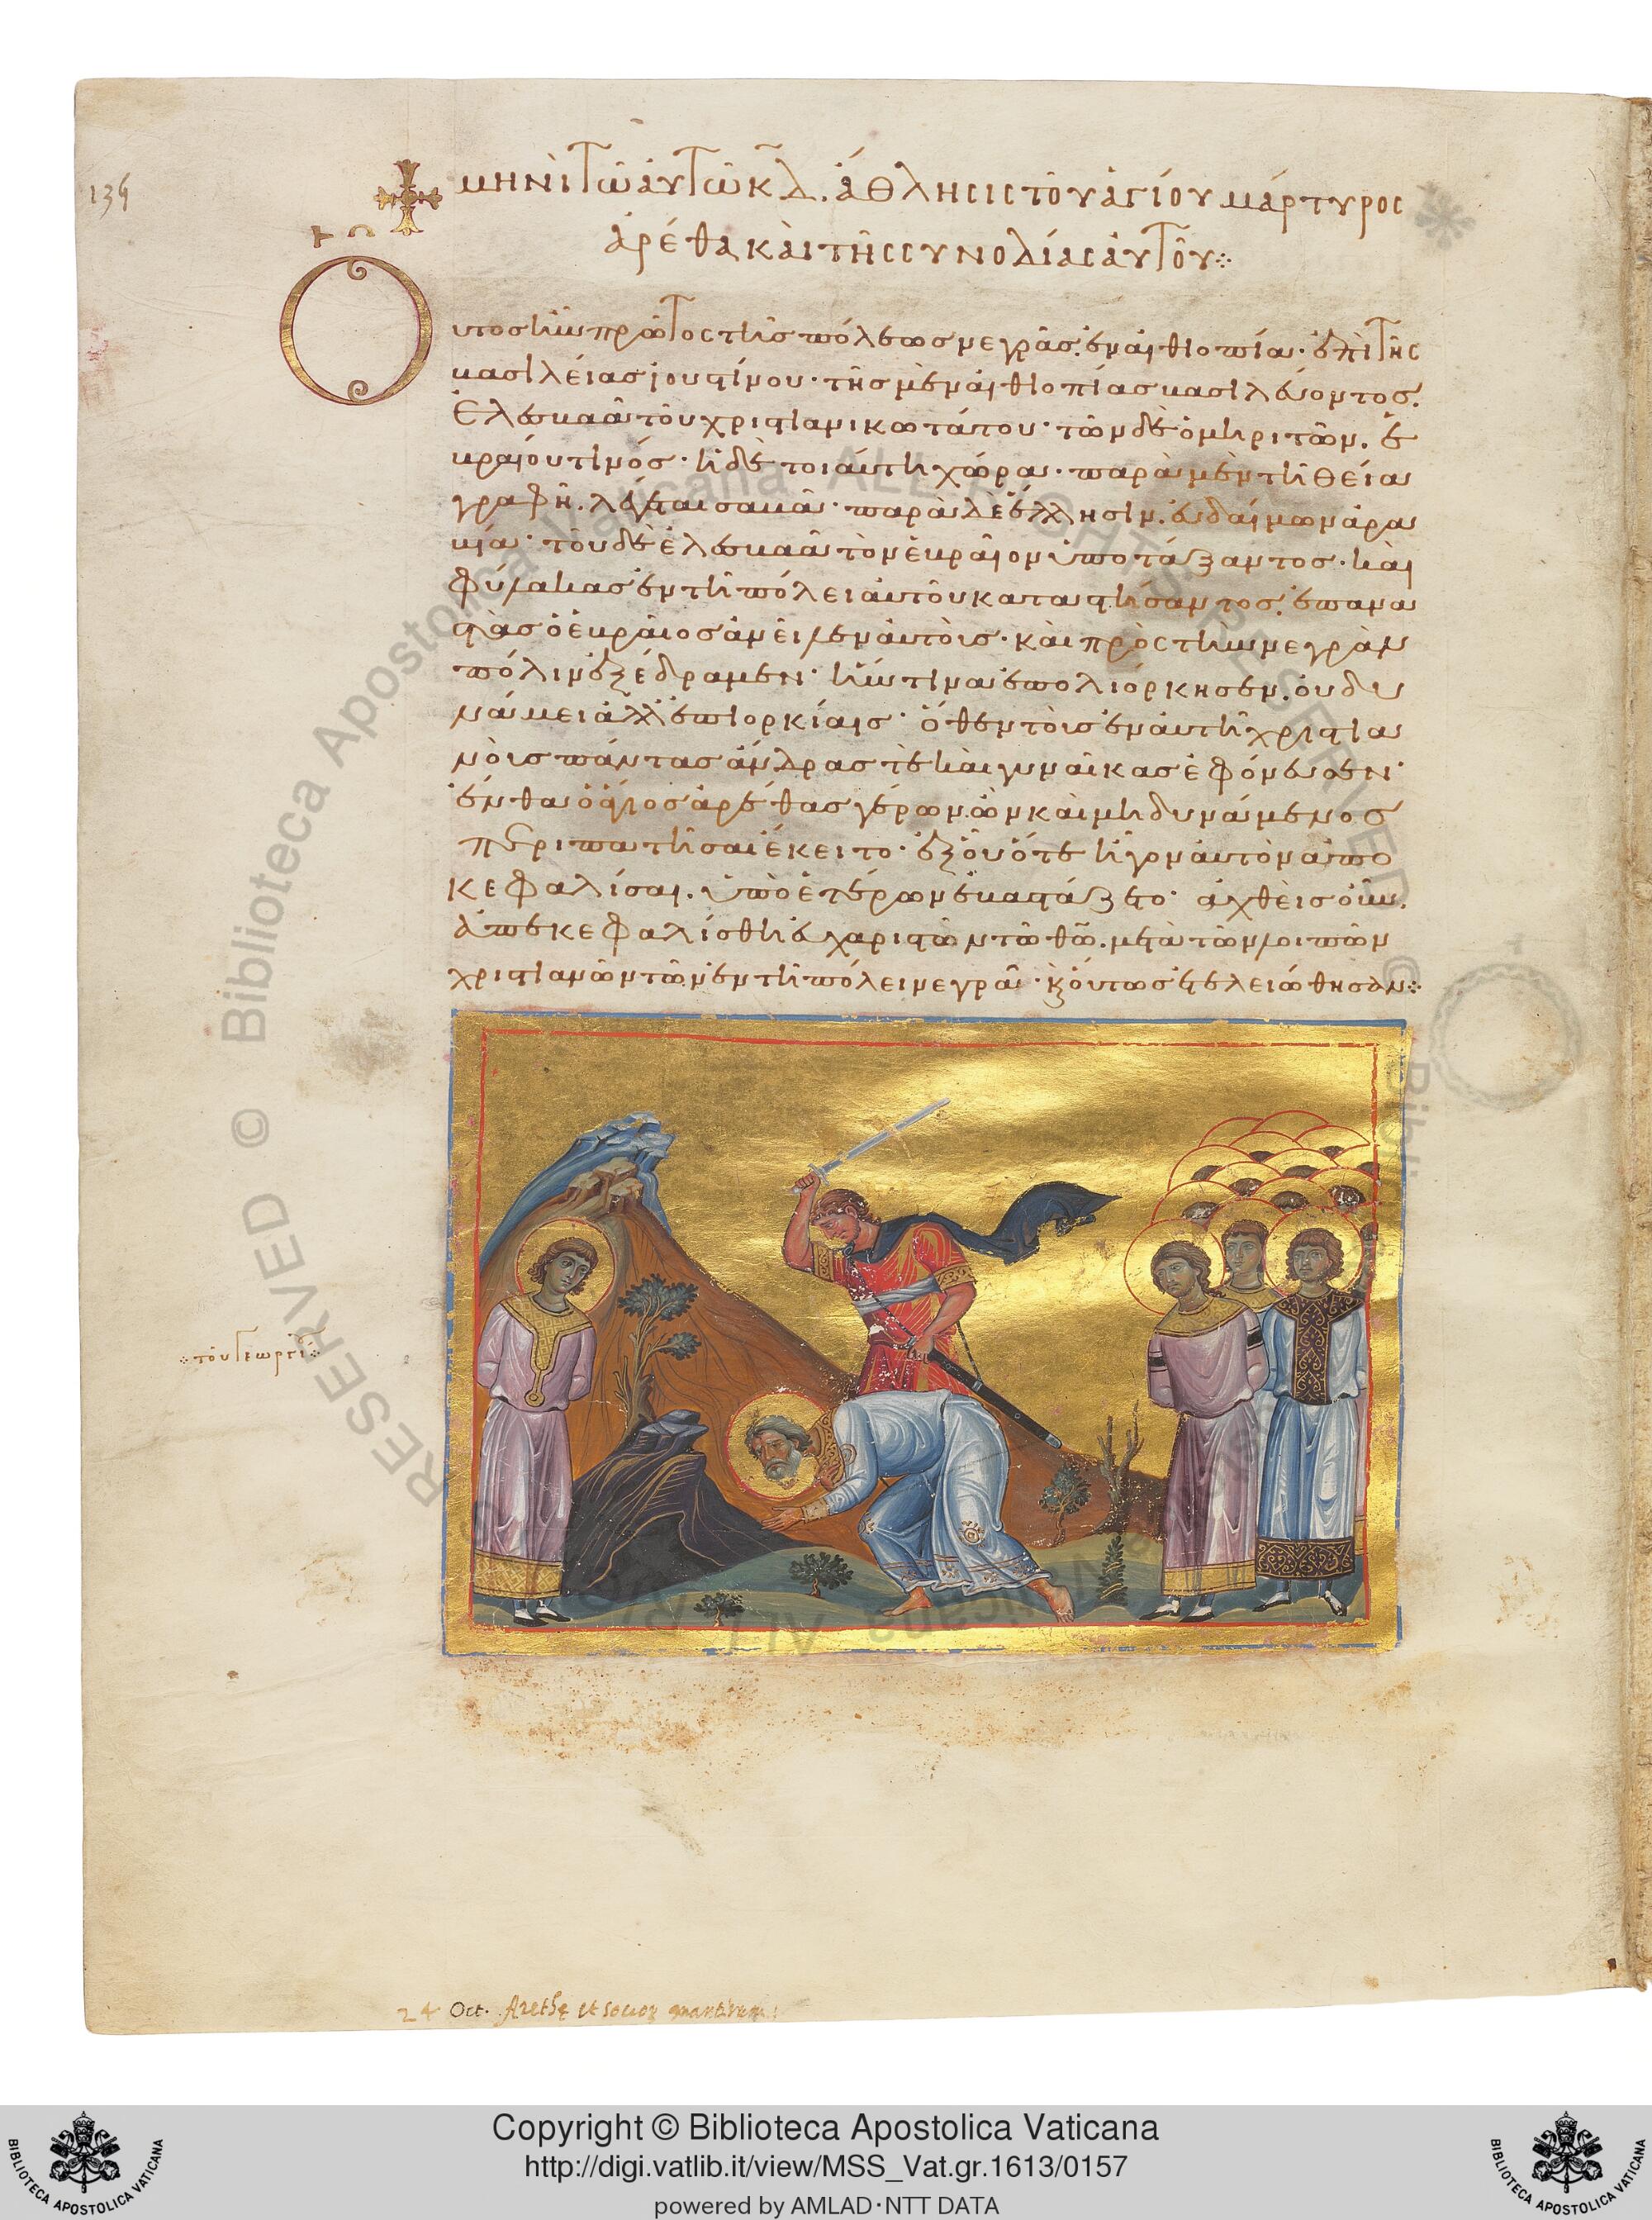 135
μηνὶ τῶ ἀυτῶ κδ̄. ἄθλησις τοῦ ἁγίου μάρτυρος
ἀρέθα, καὶ τῆς συνοδίας ἀυτοῦ
Οὗτος ἦν πρῶτος τῆς πόλεως νεγρᾶς. ἐν αἰθιοπία· ἐπὶ τῆς
βασιλείας ἰουστίνου· τῆς μὲν αἰθιοπίας βασιλεύοντος.
Ἐλεσβαὰ τοῦ χριστιανικωτάτου· τῶν δὲ ὁμηριτῶν. ἑ
βραίου τινός· ἡ δὲ τοιαύτη χώρα· παρὰ μὲν τῆ θεία
γραφῆ. λέγεται σαβᾶ· παρὰ δὲ ἕλλησιν. ἐυδαίμων ἀρα
βία· τοῦ δὲ ἐλεσβαὰ τὸν ἑβραῖον ὑποτάξαντος· καὶ
φύλακας ἐν τῆ πόλει ἀυτοῦ καταστήσαντος. ἐπανα
στὰς ὁ ἑβραῖος ἀνεῖλεν ἀυτοὺς· καὶ πρὸς τὴν νεγρὰν
πόλιν ἐξέδραμεν· ἥν τινα ἐπολιόρκησεν. ὀυ δυ
νάμει ἀλλ' ἐπιορκίαις· ὅθεν τοὺς ἐν ἀυτῆ χριστια
νοὺς πάντας ἄνδρας τὲ καὶ γυναῖκας ἐφόνευσεν·
ἔνθα ὁ ἅγιος ἀρέθας γέρων ὢν καὶ μὴ δυνάμενος
περιπατῆσαι ἔκειτο· ἐξ οὗ ὅτε ἦγον ἀυτὸν ἀπο
κεφαλίσαι. ὑπὸ ἑτέρων ἐβαστάζετο· ἀχθεὶς οὖν.
ἀπεκεφαλίσθη ἐυχαριστῶν τῶ θῶ. μετὰ τῶν λοιπῶν
χριστιανῶν τῶν ἐν τῆ πόλει νεγρᾶ· κ οὕτως ἐτελειώθησαν
τοῦ Γεωργί
24 Oct. Arethę et socior martirum
Copyright © Biblioteca Apostolica Vaticana
http://digi.vatlib.it/view/MSS_Vat.gr.1613/0157
powered by AMLAD·NTT DATA
BIBLIOTECA APOSTOLICA VATICANA
BIBLIOTECA APOSTOLICA VATICANA
© Biblioteca Apostolica Vaticana ALL RIGHTS RESERVED